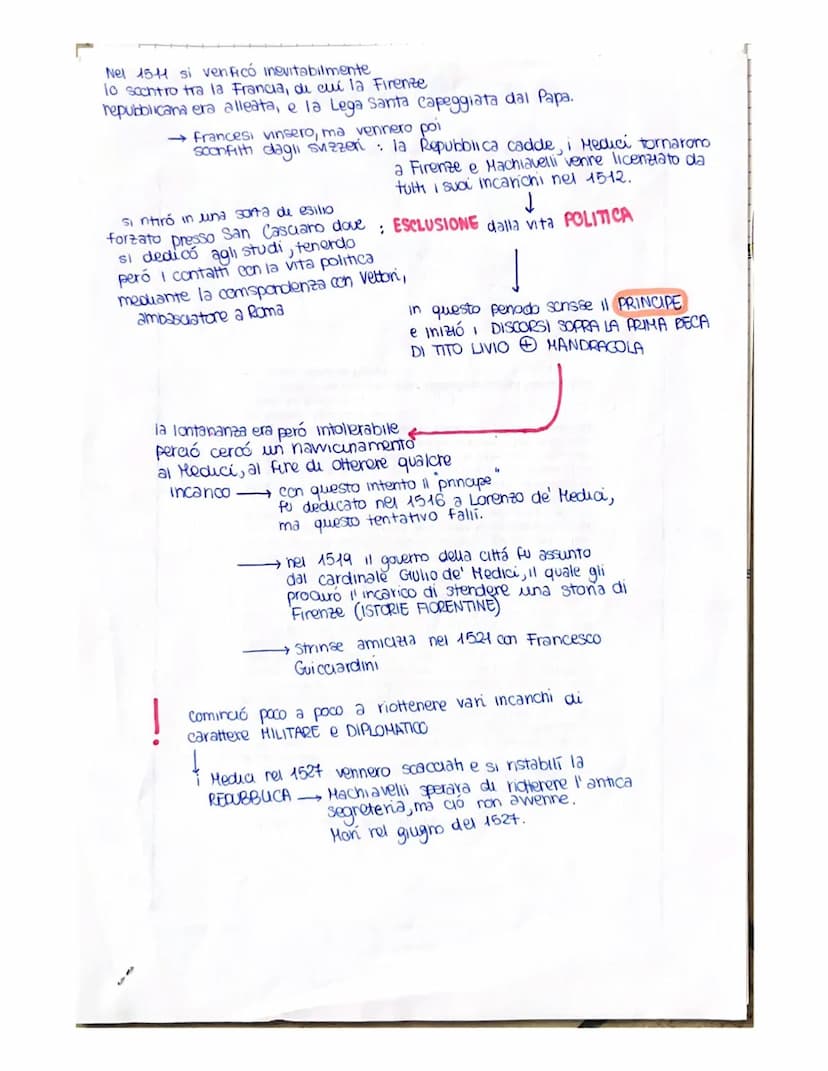 Nel 1511 si verificó inevitabilmente
lo scontro tra la Francia, di cui la Firenze
repubblicana era alleata, e la Lega Santa capeggiata dal Papa.
→ francesi vinsero, ma vennero poi
sconfitti dagli svizzeri : la Repubblica cadde, i Medici tornarono
a Firenze e Machiavelli venne licenziato da
tutti i suoi incarichi nel 1512.
↓
: ESCLUSIONE dalla vita POLITICA
si ritiró in una sorta di esilio
forzato presso San Casciano dove
si dedicó agli studi, tenendo
peró i contatti con la vita politica
mediante la corrispondenza con Vettori,
ambasciatore a Roma
↓
in questo periodo scrisse il PRINCIPE
e iniziò i DISCORSI SOPRA LA PRIMA DECA
DI TITO LIVIO ⊕ MANDRAGOLA
la lontananza era peró intollerabile
perció cercó un riavvicinamento
ai Medici, al fine di ottenere qualche
incarico → con questo intento il "principe"
fu dedicato nel 1516 a Lorenzo de' Medici,
ma questo tentativo fallì.
→ nel 1519 il governo della cittá fu assunto
dal cardinale Giulio de' Medici, il quale gli
procuró l'incarico di stendere una storia di
Firenze (ISTORIE FIORENTINE)
→ Strinse amicizia nel 1521 con Francesco
Guicciardini
! Cominció poco a poco a riottenere vari incarichi di
carattere MILITARE e DIPLOMATICO
↓
i Medici nel 1527 vennero scacciati e si ristabilì la
REPUBBLICA → Machiavelli sperava di riottenere l'antica
segreteria, ma ció non avvenne.
Morì nel giugno del 1527.